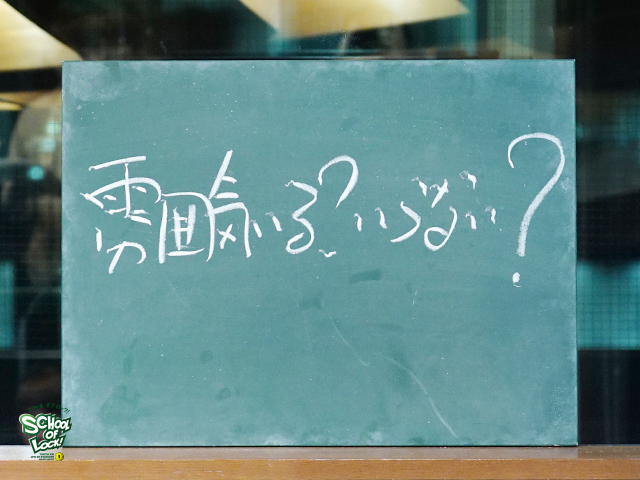 雰囲気いる?いらない?
SCHOOL
OF
LOCK!